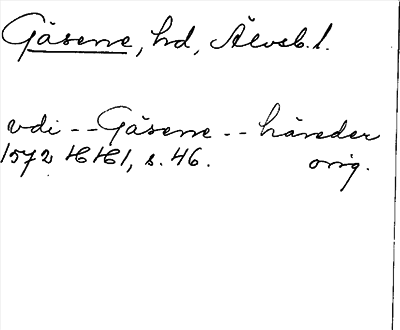 Gäsene, hd, Älvsb. l.
vdi -- Gäsene -- häreder
1572 HH 1, s. 46. orig.